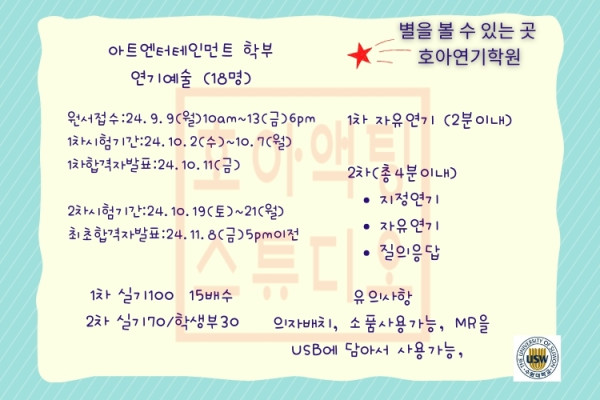 별을 볼 수 있는 곳
호아연기학원
아트엔터테인먼트 학부
연기예술 (18명)
원서접수:24.9.9(월)10am~13(금)6pm
1차시험기간:24.10.2(수)~10.7(월)
1차합격자발표:24.10.11(금)
2차시험기간:24.10.19(토)~21(월)
최초합격자발표:24.11.8(금)5pm이전
1차 자유연기 (2분이내)
2차(총4분이내)
• 지정연기
• 자유연기
• 질의응답
1차 실기100 15배수
2차 실기70/학생부30
유의사항
의자배치, 소품사용가능, MR을
USB에 담아서 사용가능,
호아액팅
스튜디오
THE UNIVERSITY OF SUWON
USW
수원대학교